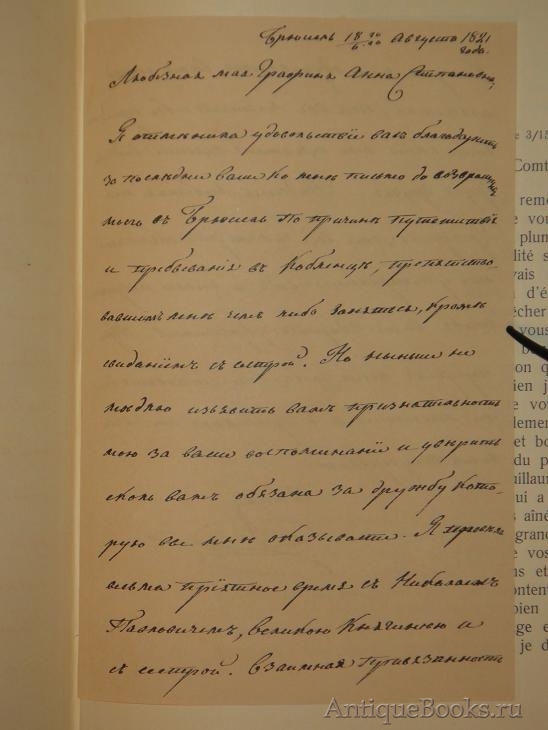 Брюсель 18 30/6.20 Августа 1821
года.
Любезная моя Графиня Анна Степановна,
Я отложила удовольствіе васъ благодарить
за послѣднее ваше ко мнѣ письмо до возвращенія
моего въ Брюсель по причинѣ путешествія
и пребыванія въ Кобленцѣ, препятство-
вавшимъ мнѣ чемъ либо заняться, кромѣ
свиданіемъ съ сестрой. Но нынѣ не
медлю изъявить вамъ признательность
мою за ваше воспоминаніе и уверить
сколь вамъ обязана за дружбу кото-
рую вы мнѣ оказываете. Я провела
весьма пріятное время съ Николаемъ
Павловичемъ, Великою Княгинею и
съ сестрой. Взаимная привязанность
e 3/15
Comt
reme
vo
plum
lité s
vais
d'é
êcher
vous
be
on q
ien j
e vo
lemen
et bo
du p
uillaum
ui a
s aîné
grand
e vos
ns et
ontent
oien
ge e
je d
RuAntiqueBooks.ru